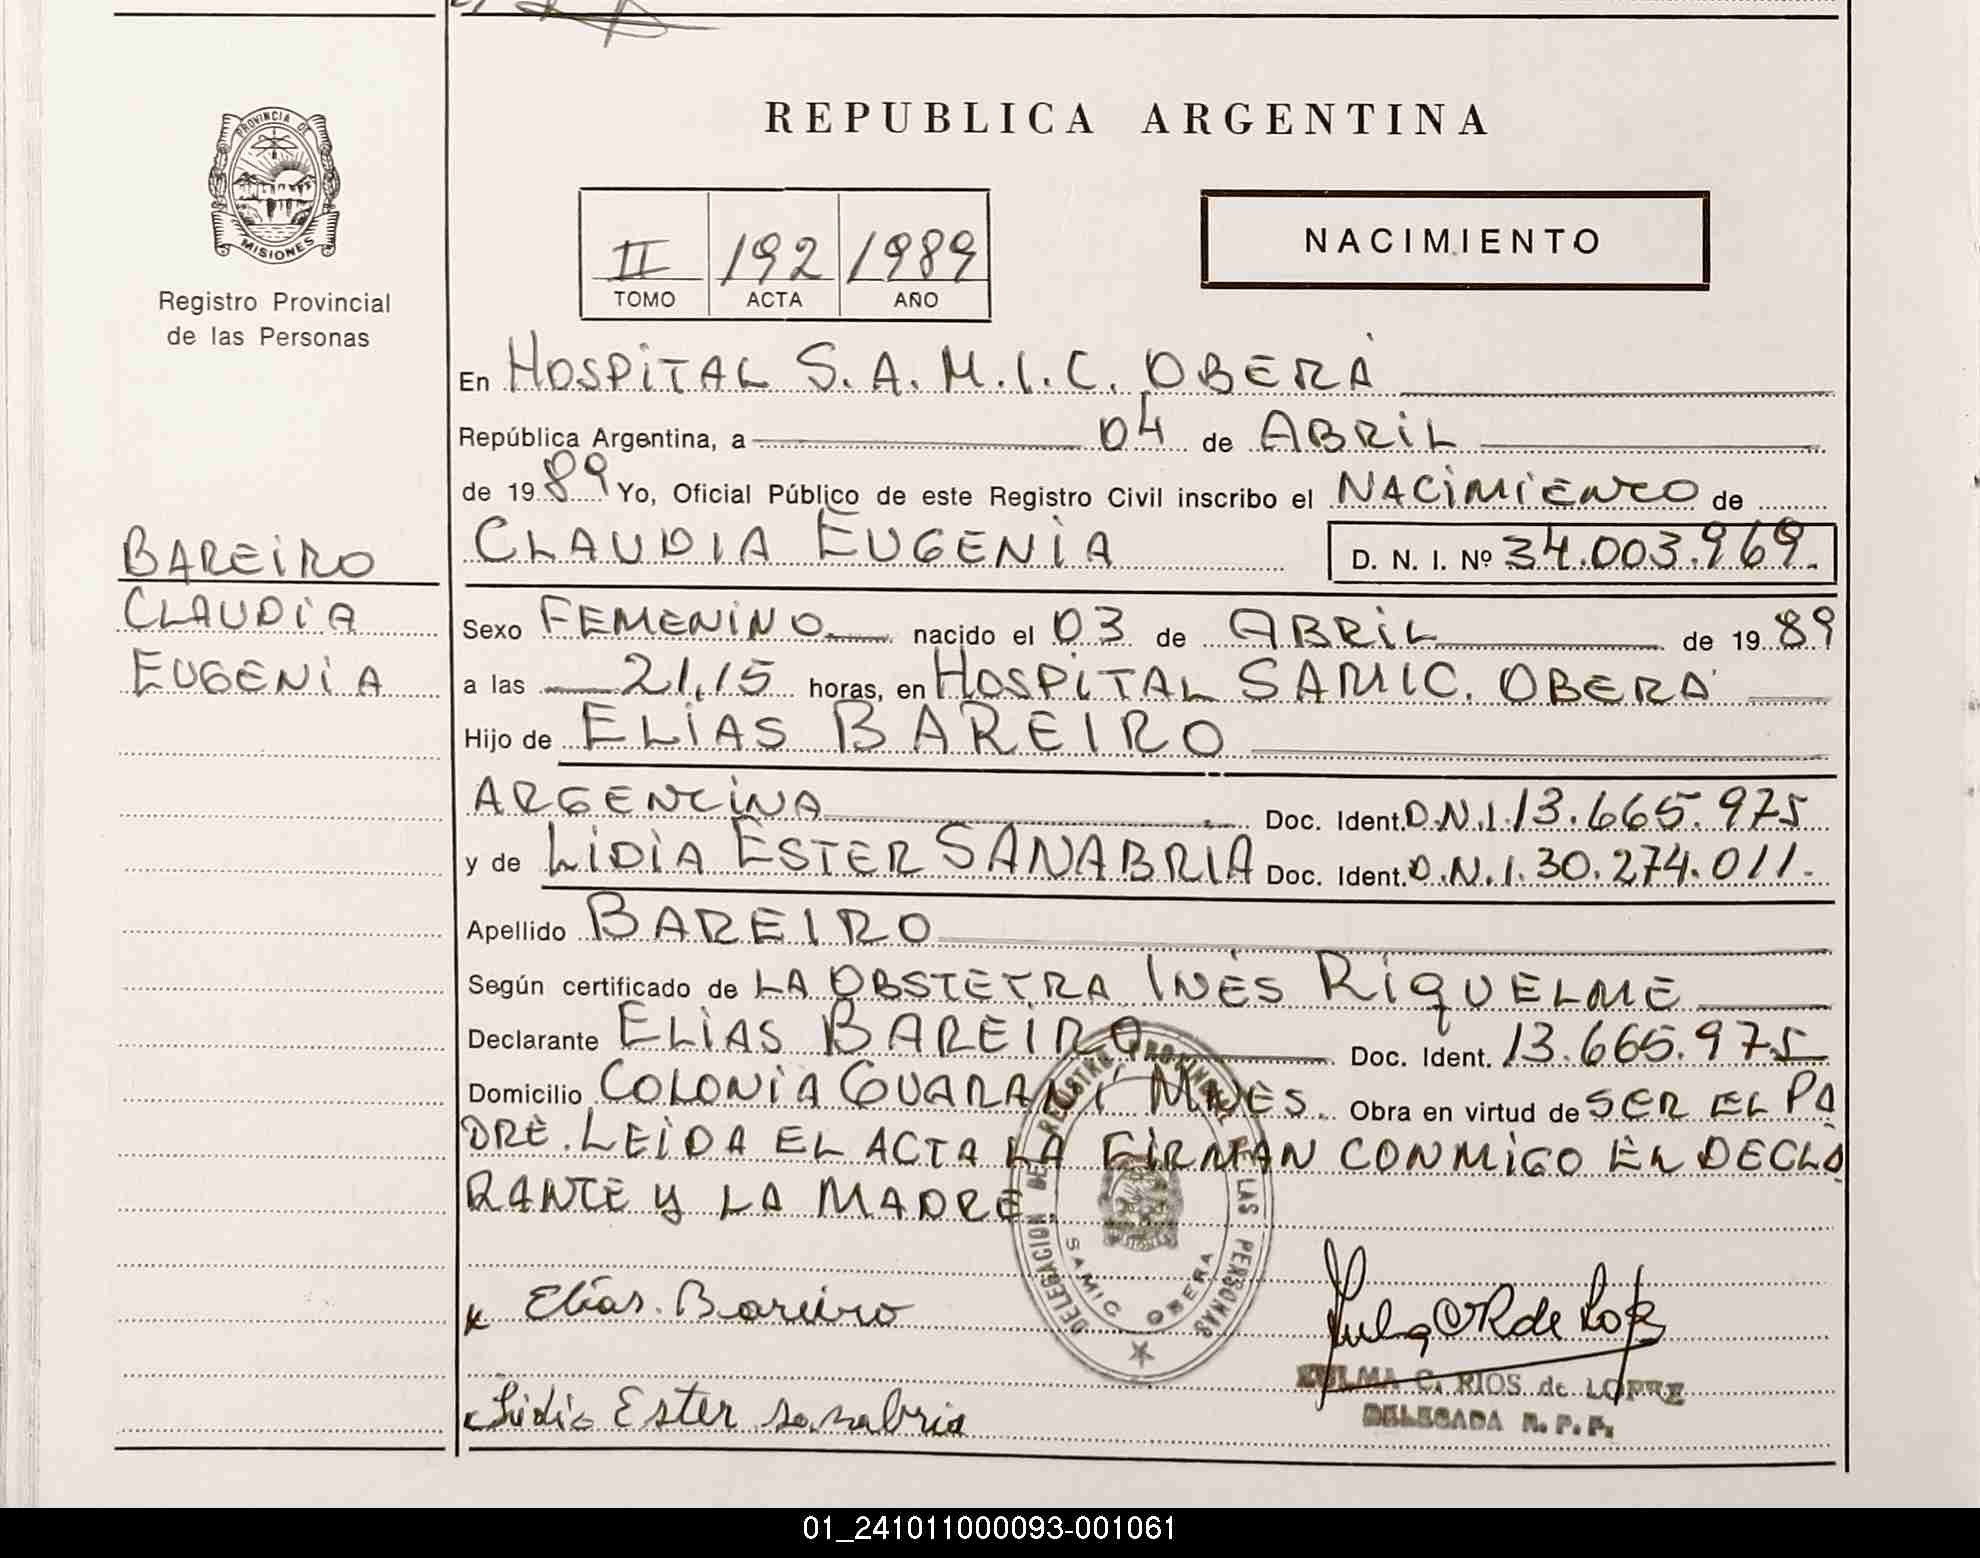 REPUBLICA ARGENTINA
PROVINCIA DE
MISIONES
Registro Provincial
de las Personas
II 192 1989
TOMO ACTA AÑO
NACIMIENTO
En HOSPITAL S.A.M.I.C. OBERÁ
República Argentina, a 04 de ABRIL
de 1989 Yo, Oficial Público de este Registro Civil inscribo el NACIMIENTO de
CLAUDIA EUGENIA D. N. I. Nº 34.003.969.
BAREIRO
CLAUDIA
EUGENIA
Sexo FEMENINO nacido el 03 de ABRIL de 1989
a las 21,15 horas, en HOSPITAL SAMIC. OBERÁ
Hijo de ELIAS BAREIRO
ARGENTINA Doc. Ident. D.N.I. 13.665.975
y de LIDIA ESTER SANABRIA Doc. Ident. D.N.I. 30.274.011.
Apellido BAREIRO
Según certificado de LA OBSTETRA INÉS RIQUELME
Declarante ELIAS BAREIRO Doc. Ident. 13.665.975
Domicilio COLONIA GUARANÍ MNES. Obra en virtud de SER EL PA
DRE. LEIDA EL ACTA LA FIRMAN CONMIGO EL DECLA
RANTE Y LA MADRE.
DELEGACION DEL REGISTRO PROVINCIAL DE LAS PERSONAS
SAMIC OBERA
Elías. Bareiro
Lidia Ester Sanabria
ZULMA C. RIOS de LOPEZ
DELEGADA R. P. P.
01_241011000093-001061